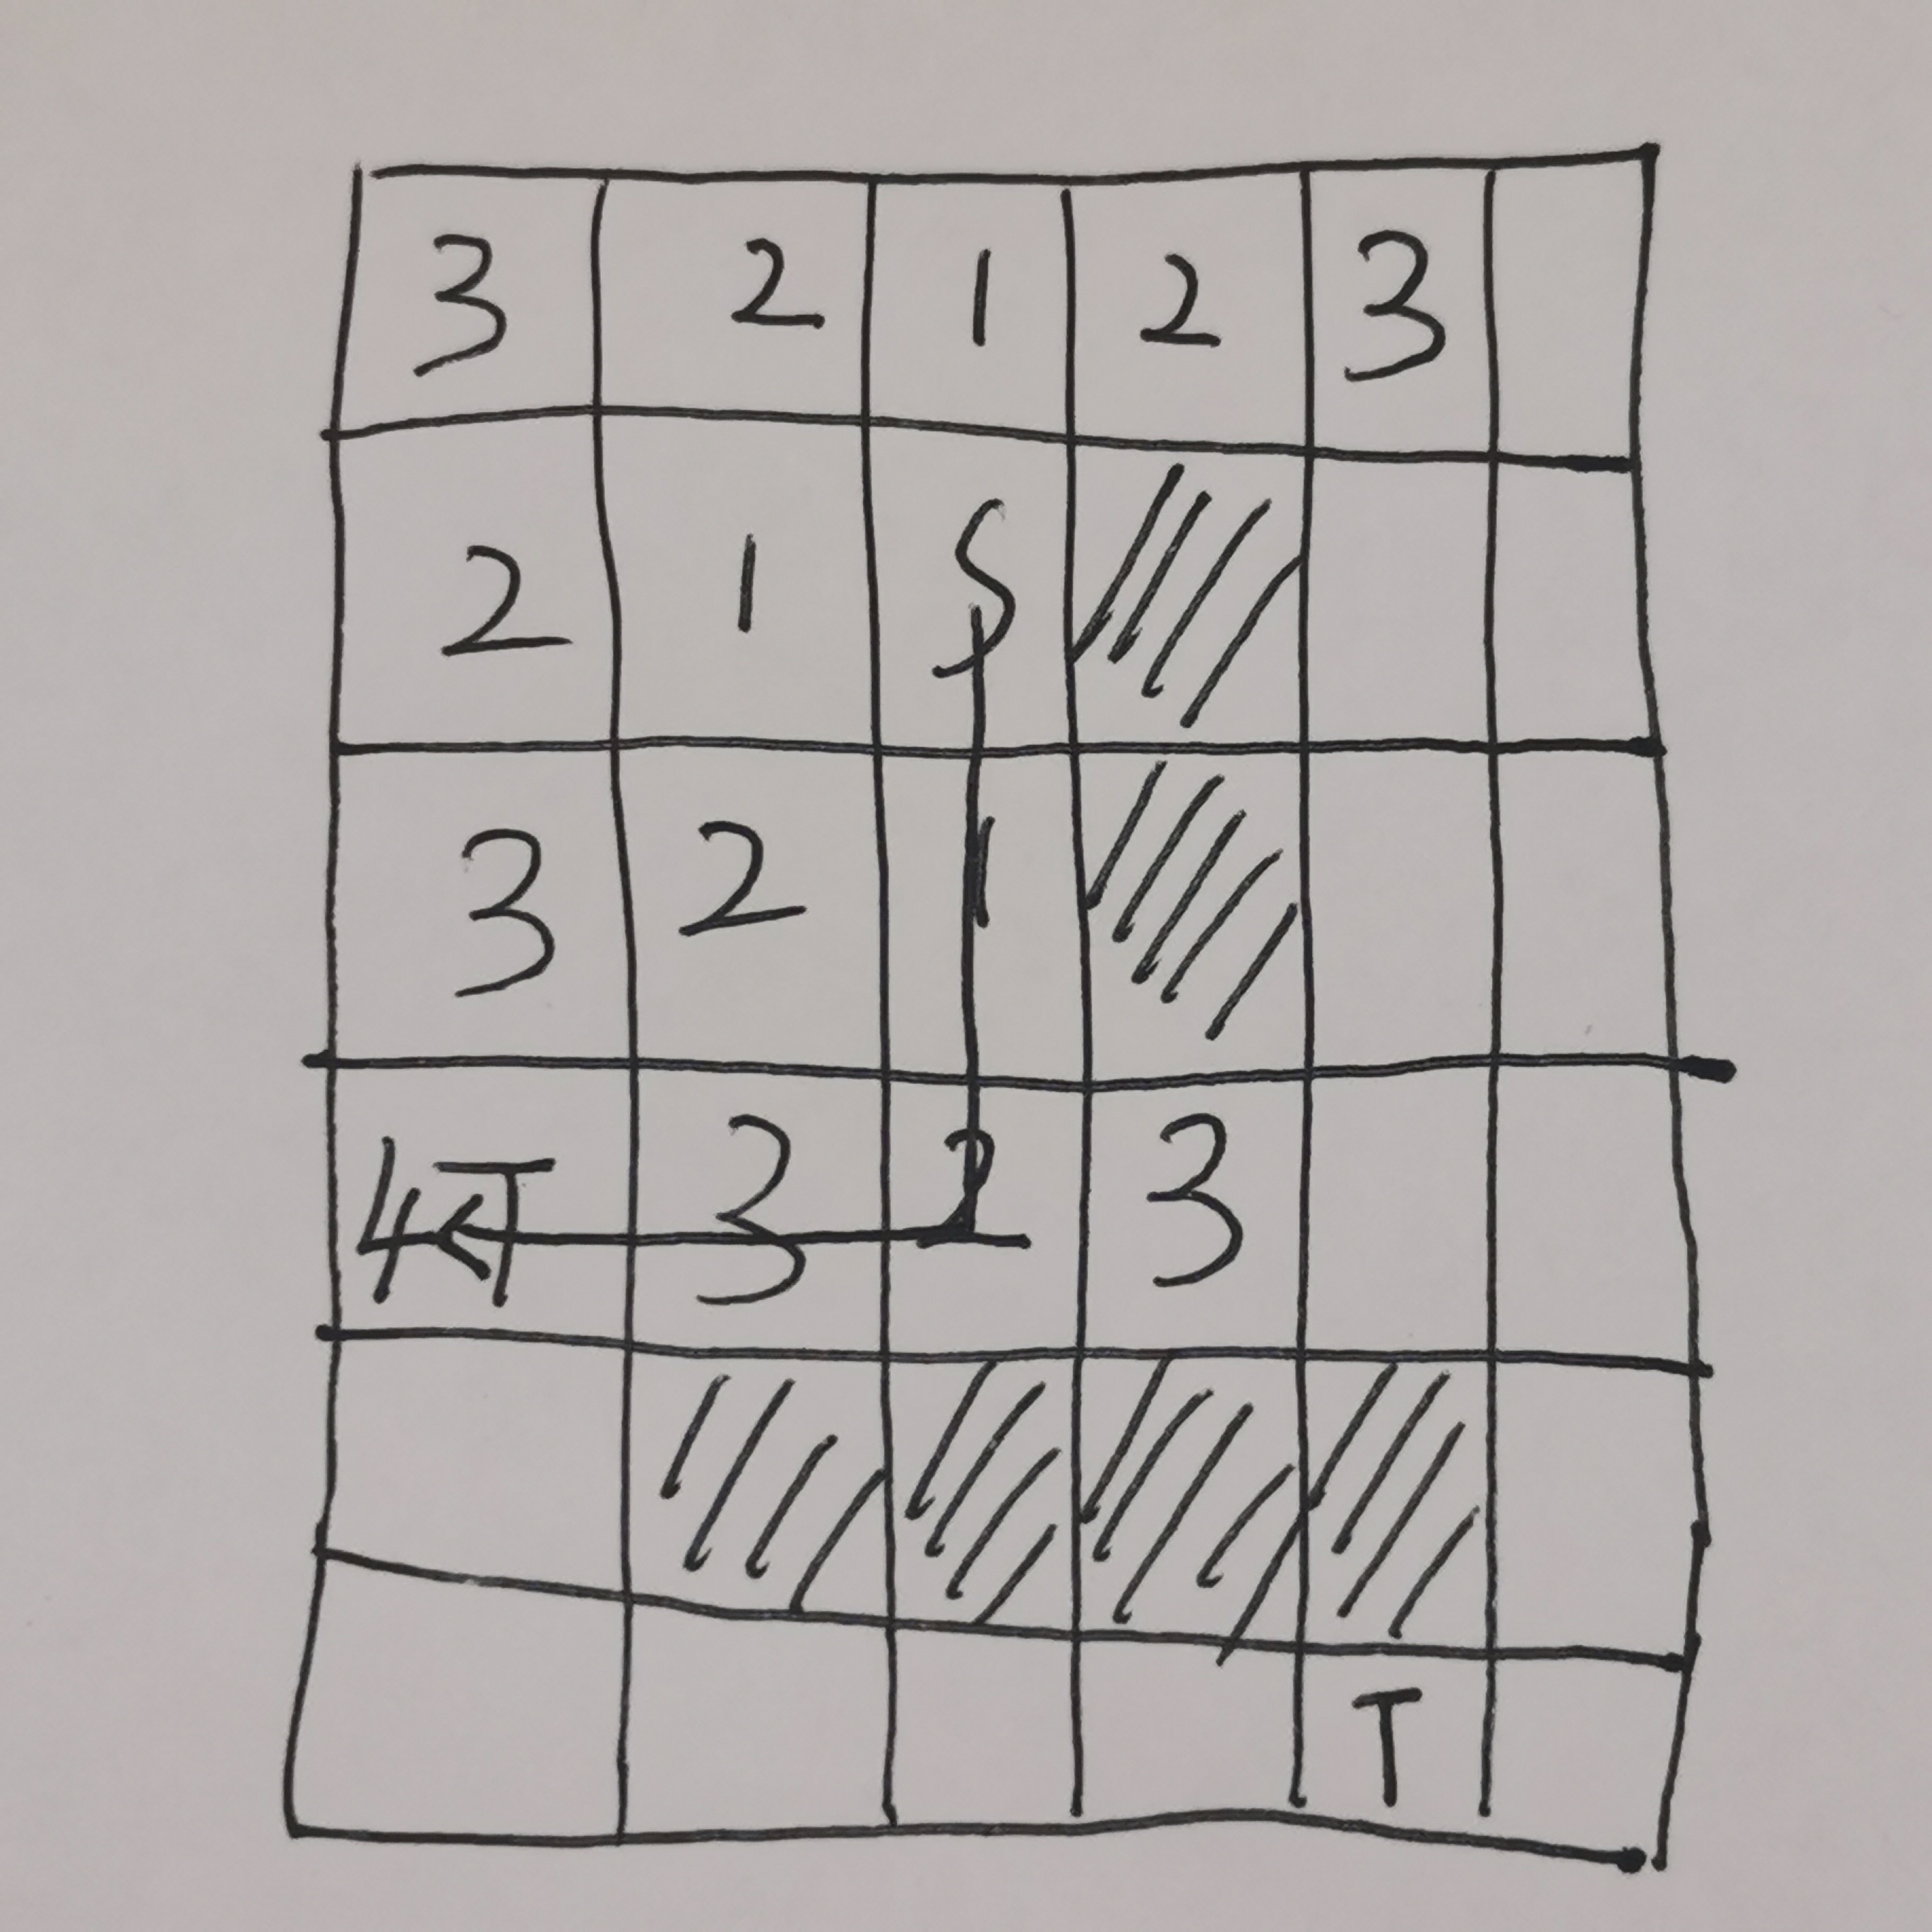 3 2 1 2 3
2 1 S
3 2 1
4 T 3 2 3
T